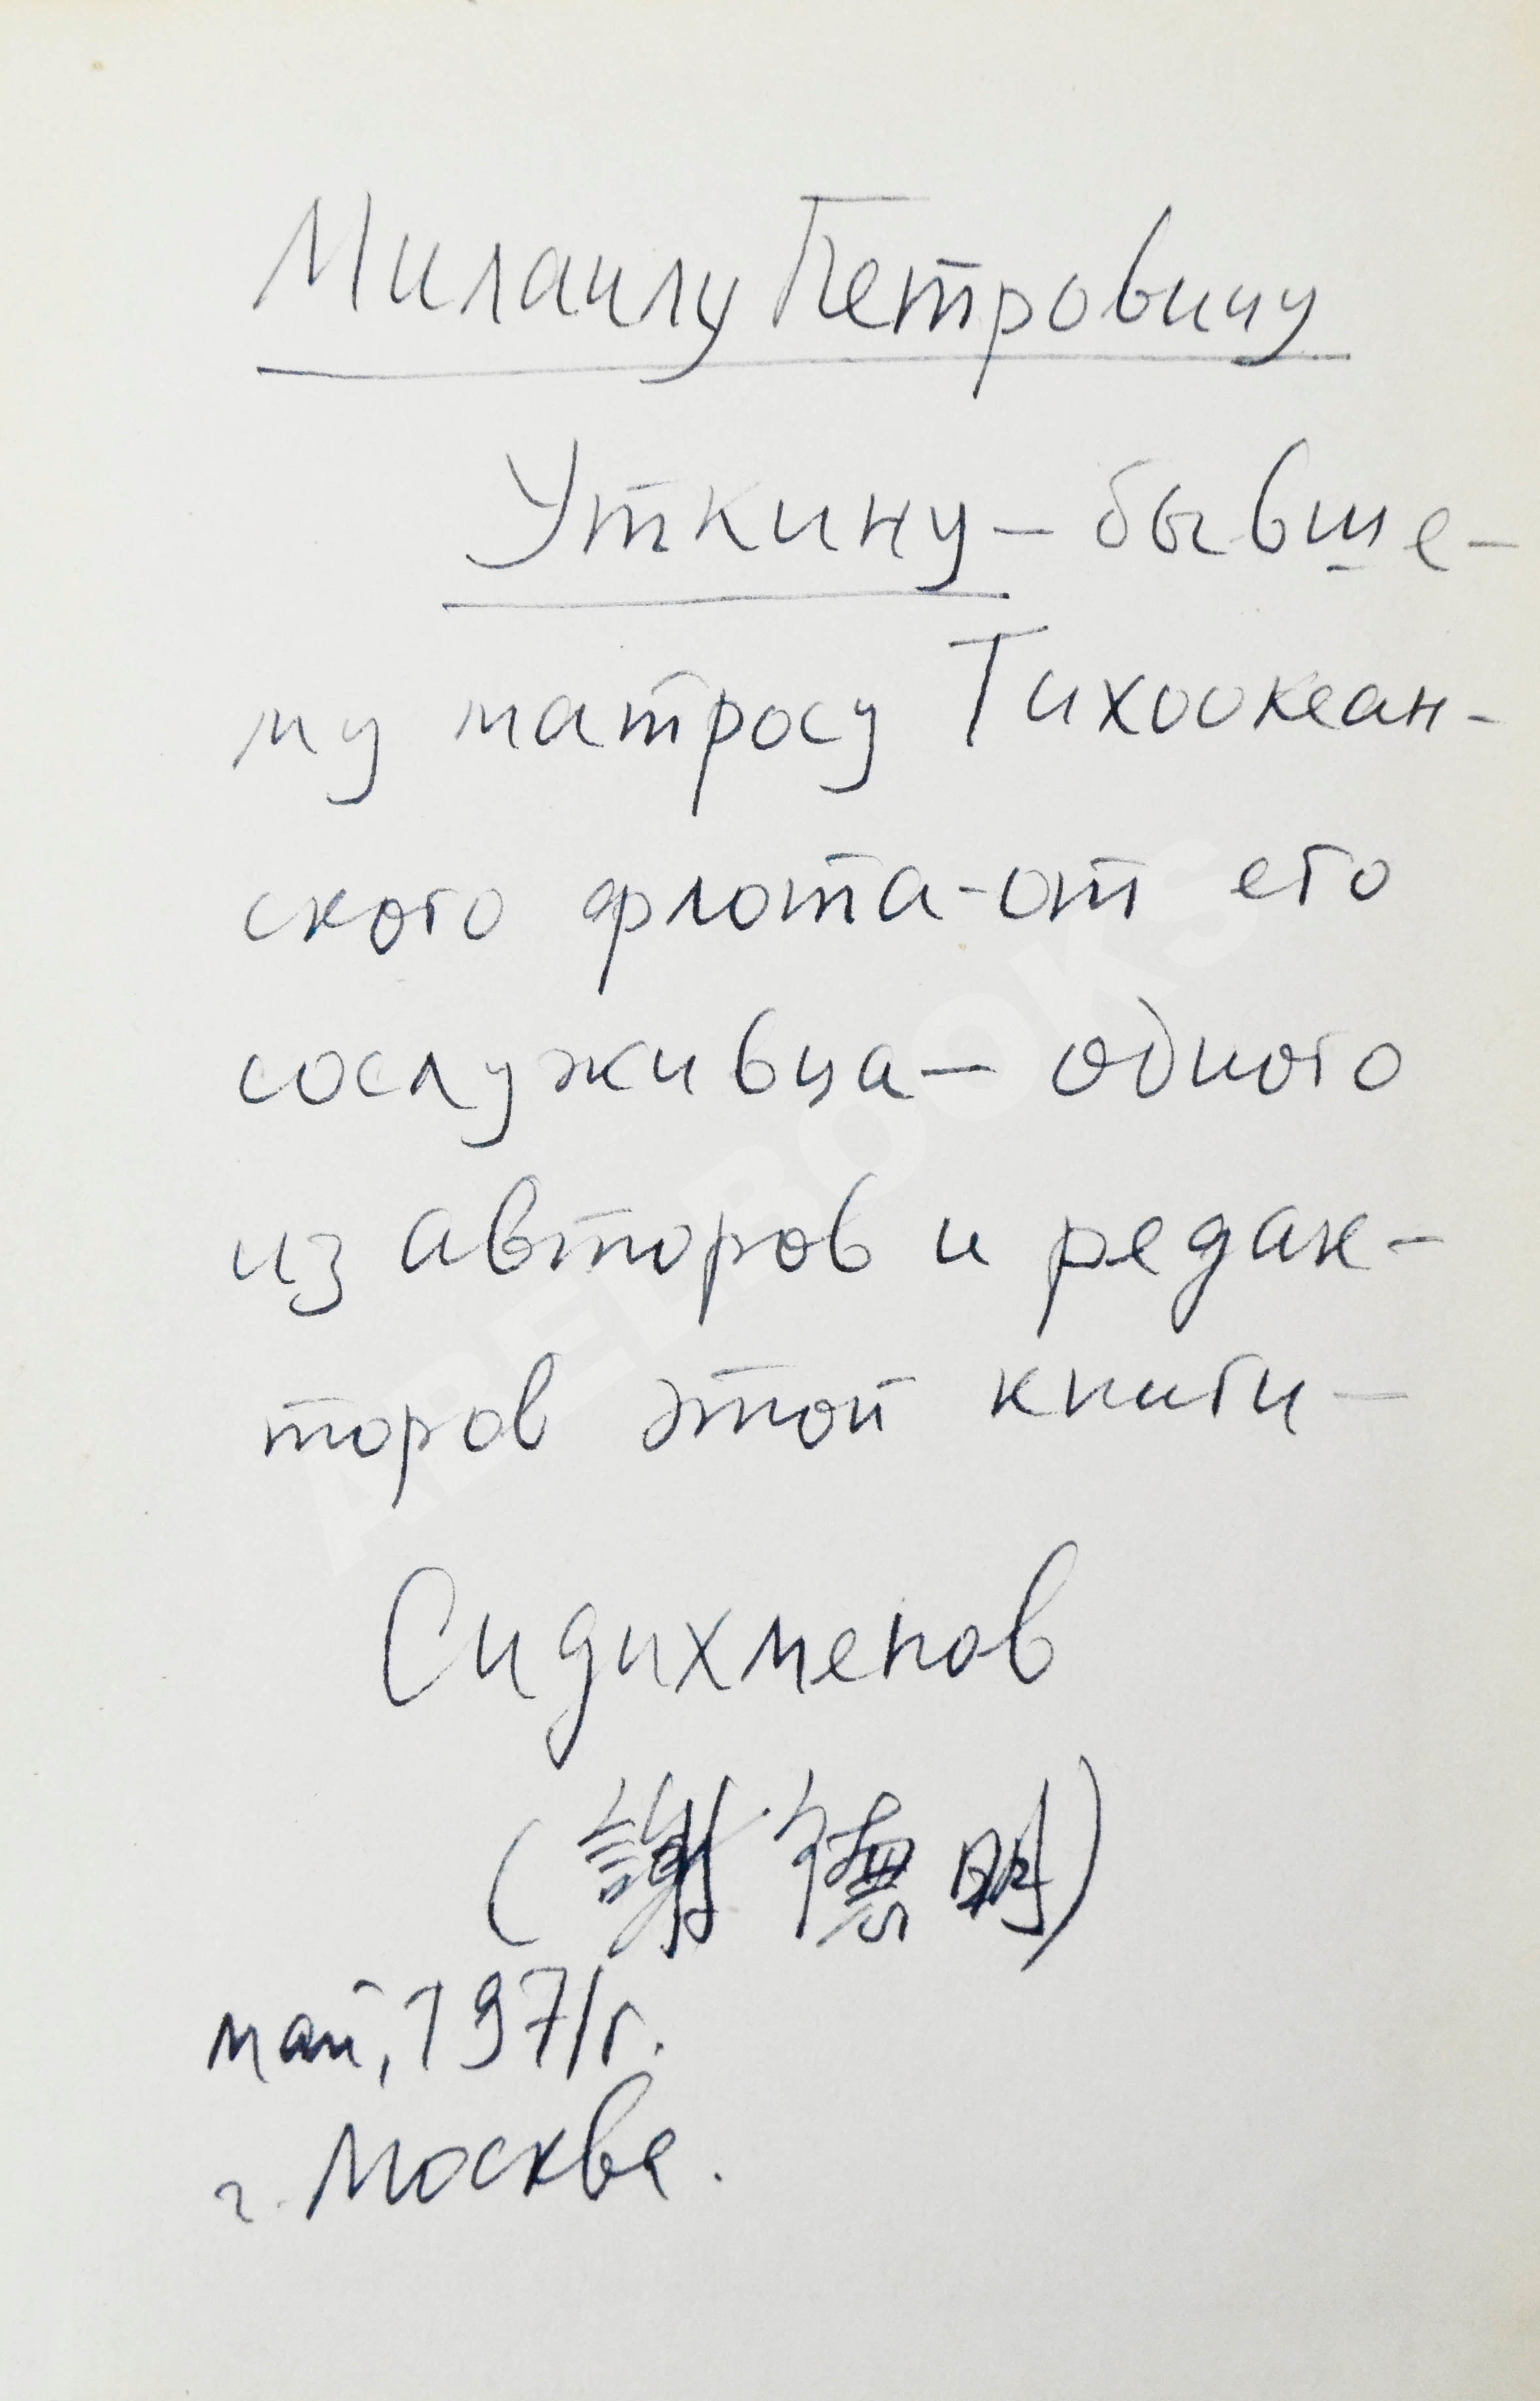 Михаилу Петровичу
Уткину – бывше-
му матросу Тихоокеан-
ского флота – от его
сослуживца – одного
из авторов и редак-
торов этой книги –
Сидихменов
(謝德明)
май, 1971 г.
г. Москва.
ABELBOOKS